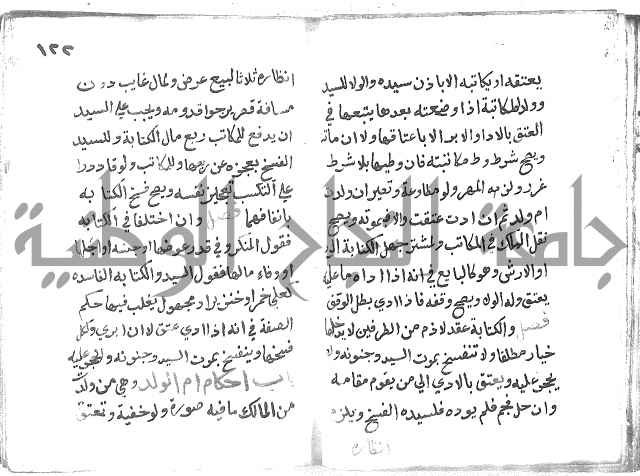 يعتقه او يكاتبه الا باذن سيده والولا للسيد
وولد المكاتبة اذا وضعته بعدها يتبعها في
العتق بالادا والابرا لا باعتاقها ولا ان ماتت
ويصح شرط وطء مكاتبته فان وطيها بلا شرط
عزر ولزمه المهر ولو مطاوعة وتصير ان ولدت
ام ولد ثم ان ادت عتقت والا فبموته ويصح
نقل الملك في المكاتب ولمشتر جهل الكتابة الرد
او الارش وهو كالبايع في انه اذا اداه ما عليه
يعتق وله الولا ويصح وقفه فاذا ادي بطل الوقف
فصل والكتابة عقد لازم من الطرفين لا يدخلها
خيار مطلقا ولا تنفسخ بموت السيد وجنونه ولا
بحجر عليه ويعتق بالادي الي من يقوم مقامه
وان حل نجم فلم يوده فلسيده الفسخ ويلزم
انظاره
١٢٢
انظاره ثلاثا لبيع عرض ولمال غايب دون
مسافة قصر يرجوا قدومه ويجب علي السيد
ان يدفع للمكاتب ربع مال الكتابة وللسيد
الفسخ بعجزه عن ربعها وللمكاتب ولو قادرا
علي التكسب تعجيز نفسه ويصح فسخ الكتابه
باتفاقهما فصل وان اختلفا في الكتابه
فقول المنكر وفي قدر عوضها او جنسه او اجلها
او وفاء مالها فقول السيد والكتابه الفاسده
كعلي خمر او خنزير او مجهول يغلب فيها حكم
الصفة في انه اذا ادي عتق لا ان ابري ولكل
فسخها وينفسخ بموت السيد وجنونه وحجر عليه
باب احكام ام الولد وهي من ولدت
من المالك ما فيه صورة ولو خفية وتعتق
جامعة النجاح الوطنية